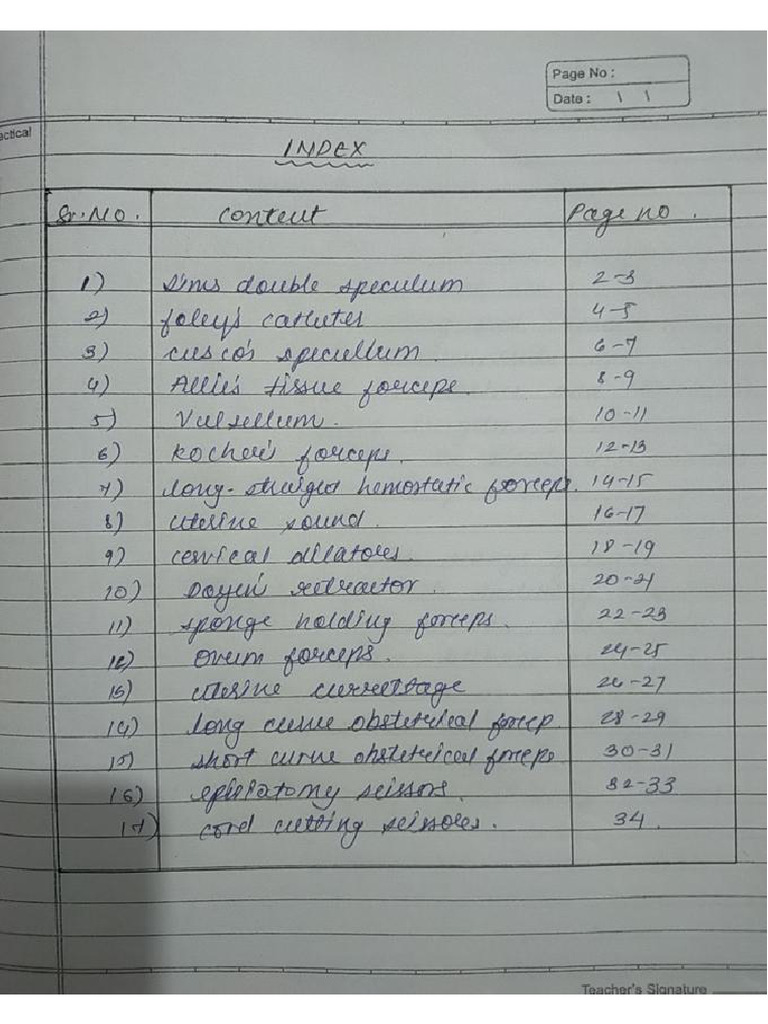 Page No :
Date : \ \
actical
INDEX
Sr.No. Content Page no.
1) Sims double speculum 2-3
2) foley's catheter 4-5
3) cusco's speculum 6-7
4) Allie's tissue forceps. 8-9
5) Vulsellum. 10-11
6) Kocher's forceps. 12-13
7) long-straight hemostatic forceps. 14-15
8) uterine sound. 16-17
9) cervical dilatores. 18-19
10) Doyen's retractor. 20-21
11) sponge holding forceps. 22-23
12) Ovum forceps. 24-25
13) uterine currettage 26-27
14) long curve obstetrical forcep 28-29
15) short curve obstetrical forceps 30-31
16) episiotomy scissors. 32-33
17) cord cutting scissores. 34.
Teacher's Signature